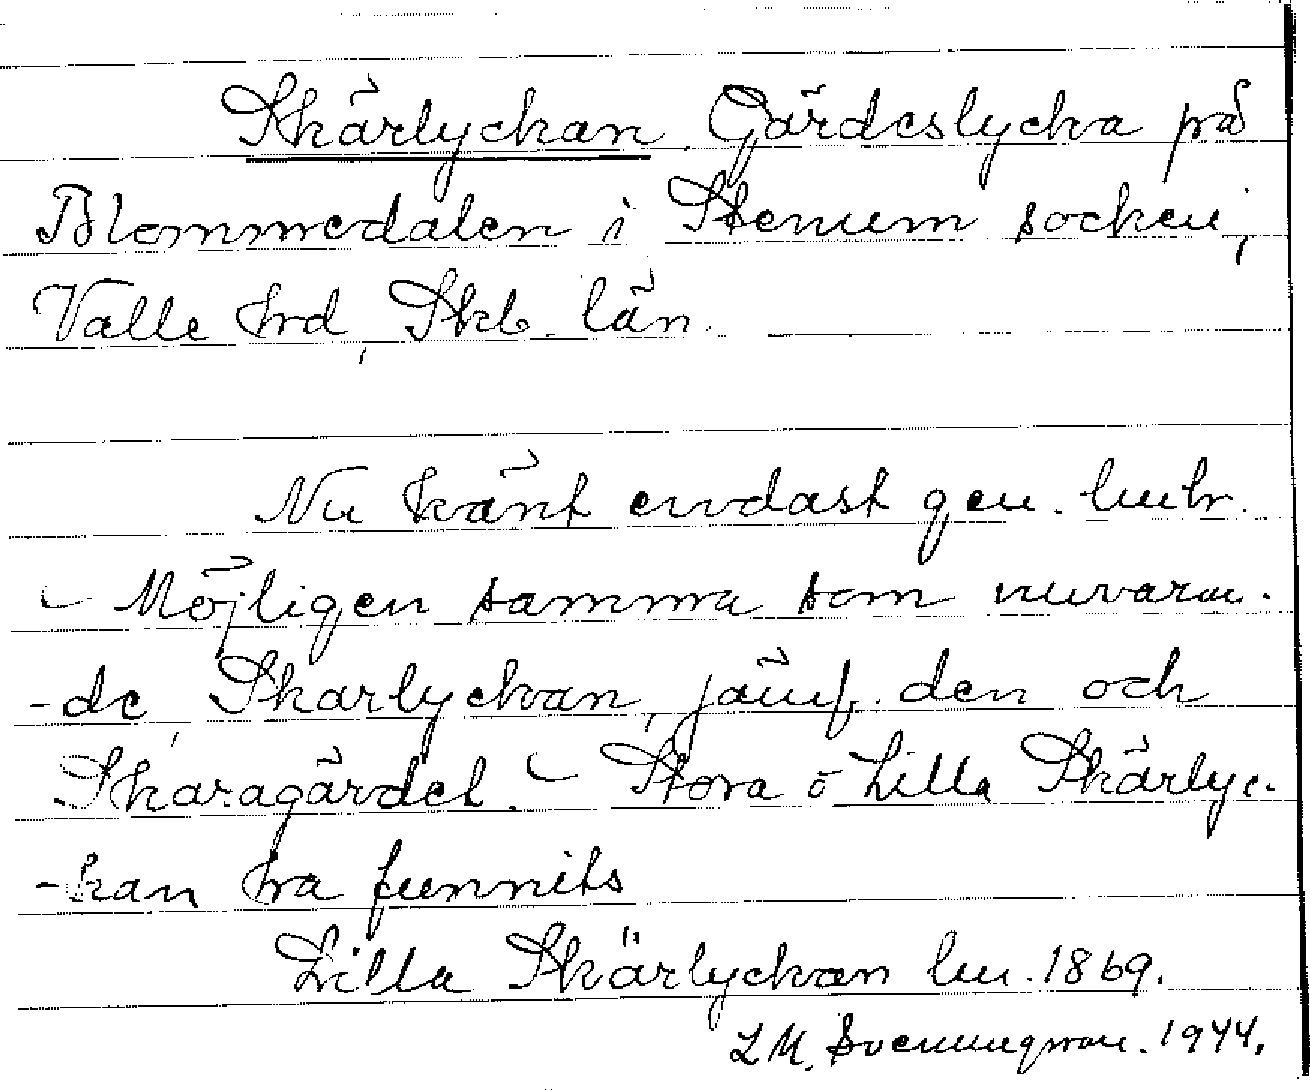 Skärlyckan. Gärdeslycka på
Blommedalen i Stenum socken,
Valle hrd, Skb. län.
Nu känt endast gen.
- Möjligen samma som nuvaran-
-de, Skarlyckan, jämf. den och
Skaragärdet. - Stora o Lilla Skärlyc-
-kan ha funnits
Lilla Skärlyckan lm. 1869.
L M. Svenungsson. 1944.